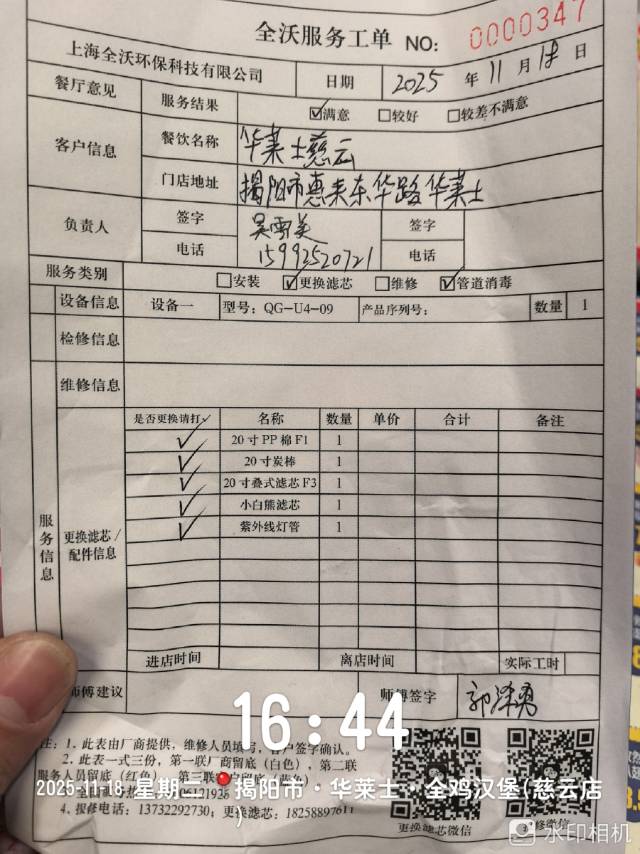 全沃服务工单 NO: 0000347
上海全沃环保科技有限公司 日期 2025 年 11 月 18 日
餐厅意见 服务结果 ☑满意 □较好 □较差不满意
客户信息 餐饮名称 华莱士慈云
门店地址 揭阳市惠来东华路华莱士
负责人 签字 吴雪美 签字
电话 15992520721 电话
服务类别 □安装 ☑更换滤芯 □维修 ☑管道消毒
设备信息 设备一 型号: QG-U4-09 产品序列号: 数量 1
检修信息
维修信息
服务信息
更换滤芯/配件信息
是否更换请打✓ 名称 数量 单价 合计 备注
✓ 20寸PP棉F1 1
✓ 20寸炭棒 1
✓ 20寸叠式滤芯F3 1
✓ 小白熊滤芯 1
✓ 紫外线灯管 1
进店时间 离店时间 实际工时
师傅建议 师傅签字
16:44
注: 1、此表由厂商提供，维修人员填写，客户签字确认。
2、此表一式三份，第一联厂商留底（白色），第二联
服务人员留底（红色），第三联
2025-11-18 星期二 揭阳市·华莱士·全鸡汉堡(慈云店
)
4、报修电话: 13732292730; 更换滤芯: 18258897611
更换滤芯微信 报修微信
水印相机